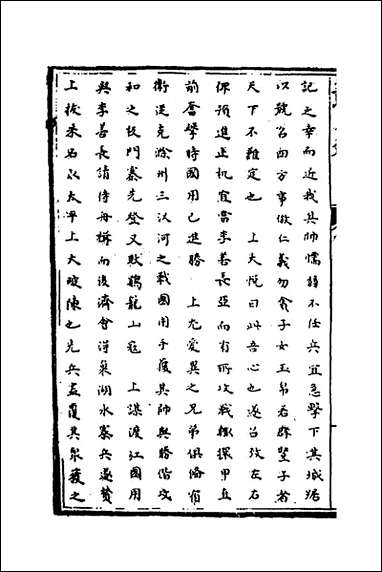 記之幸而近我其帥懦弱不任兵宜急擊下其城據
以號召四方事倣仁義勿貪子女玉帛若群豎子者
天下不難定也　上大悅曰此吾心也遂召致左右
俾預進止机宜當李善長亞而有所攻戰輒擐甲丘
前奮擊時國用已進勝　上尤愛異之兄弟俱偹宿
衛從克滁州三汊河之戰國用手馘其帥與勝偕攻
和之板門寨先登又敗鷄龍山寇　上謀渡江國用
與李善長請侍毋搆而後濟會得巢湖水寨兵遂贊
上拔朱石以太平上大破陳也先兵盂覆其衆蔑之